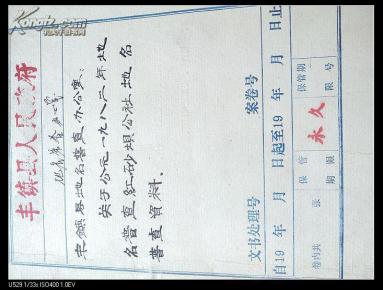 丰镇县人民政府
丰镇县地名普查办公室:
关于公元一九八三年地
名普查红砂坝公社地名
普查資料.
文书处理号
案卷号
自19 年 月 日起至19 年 月 日止
卷内共 张
保管期限
永久
保管期限 号
Kongfz.com
U529 1/33s ISO400 1.0EV